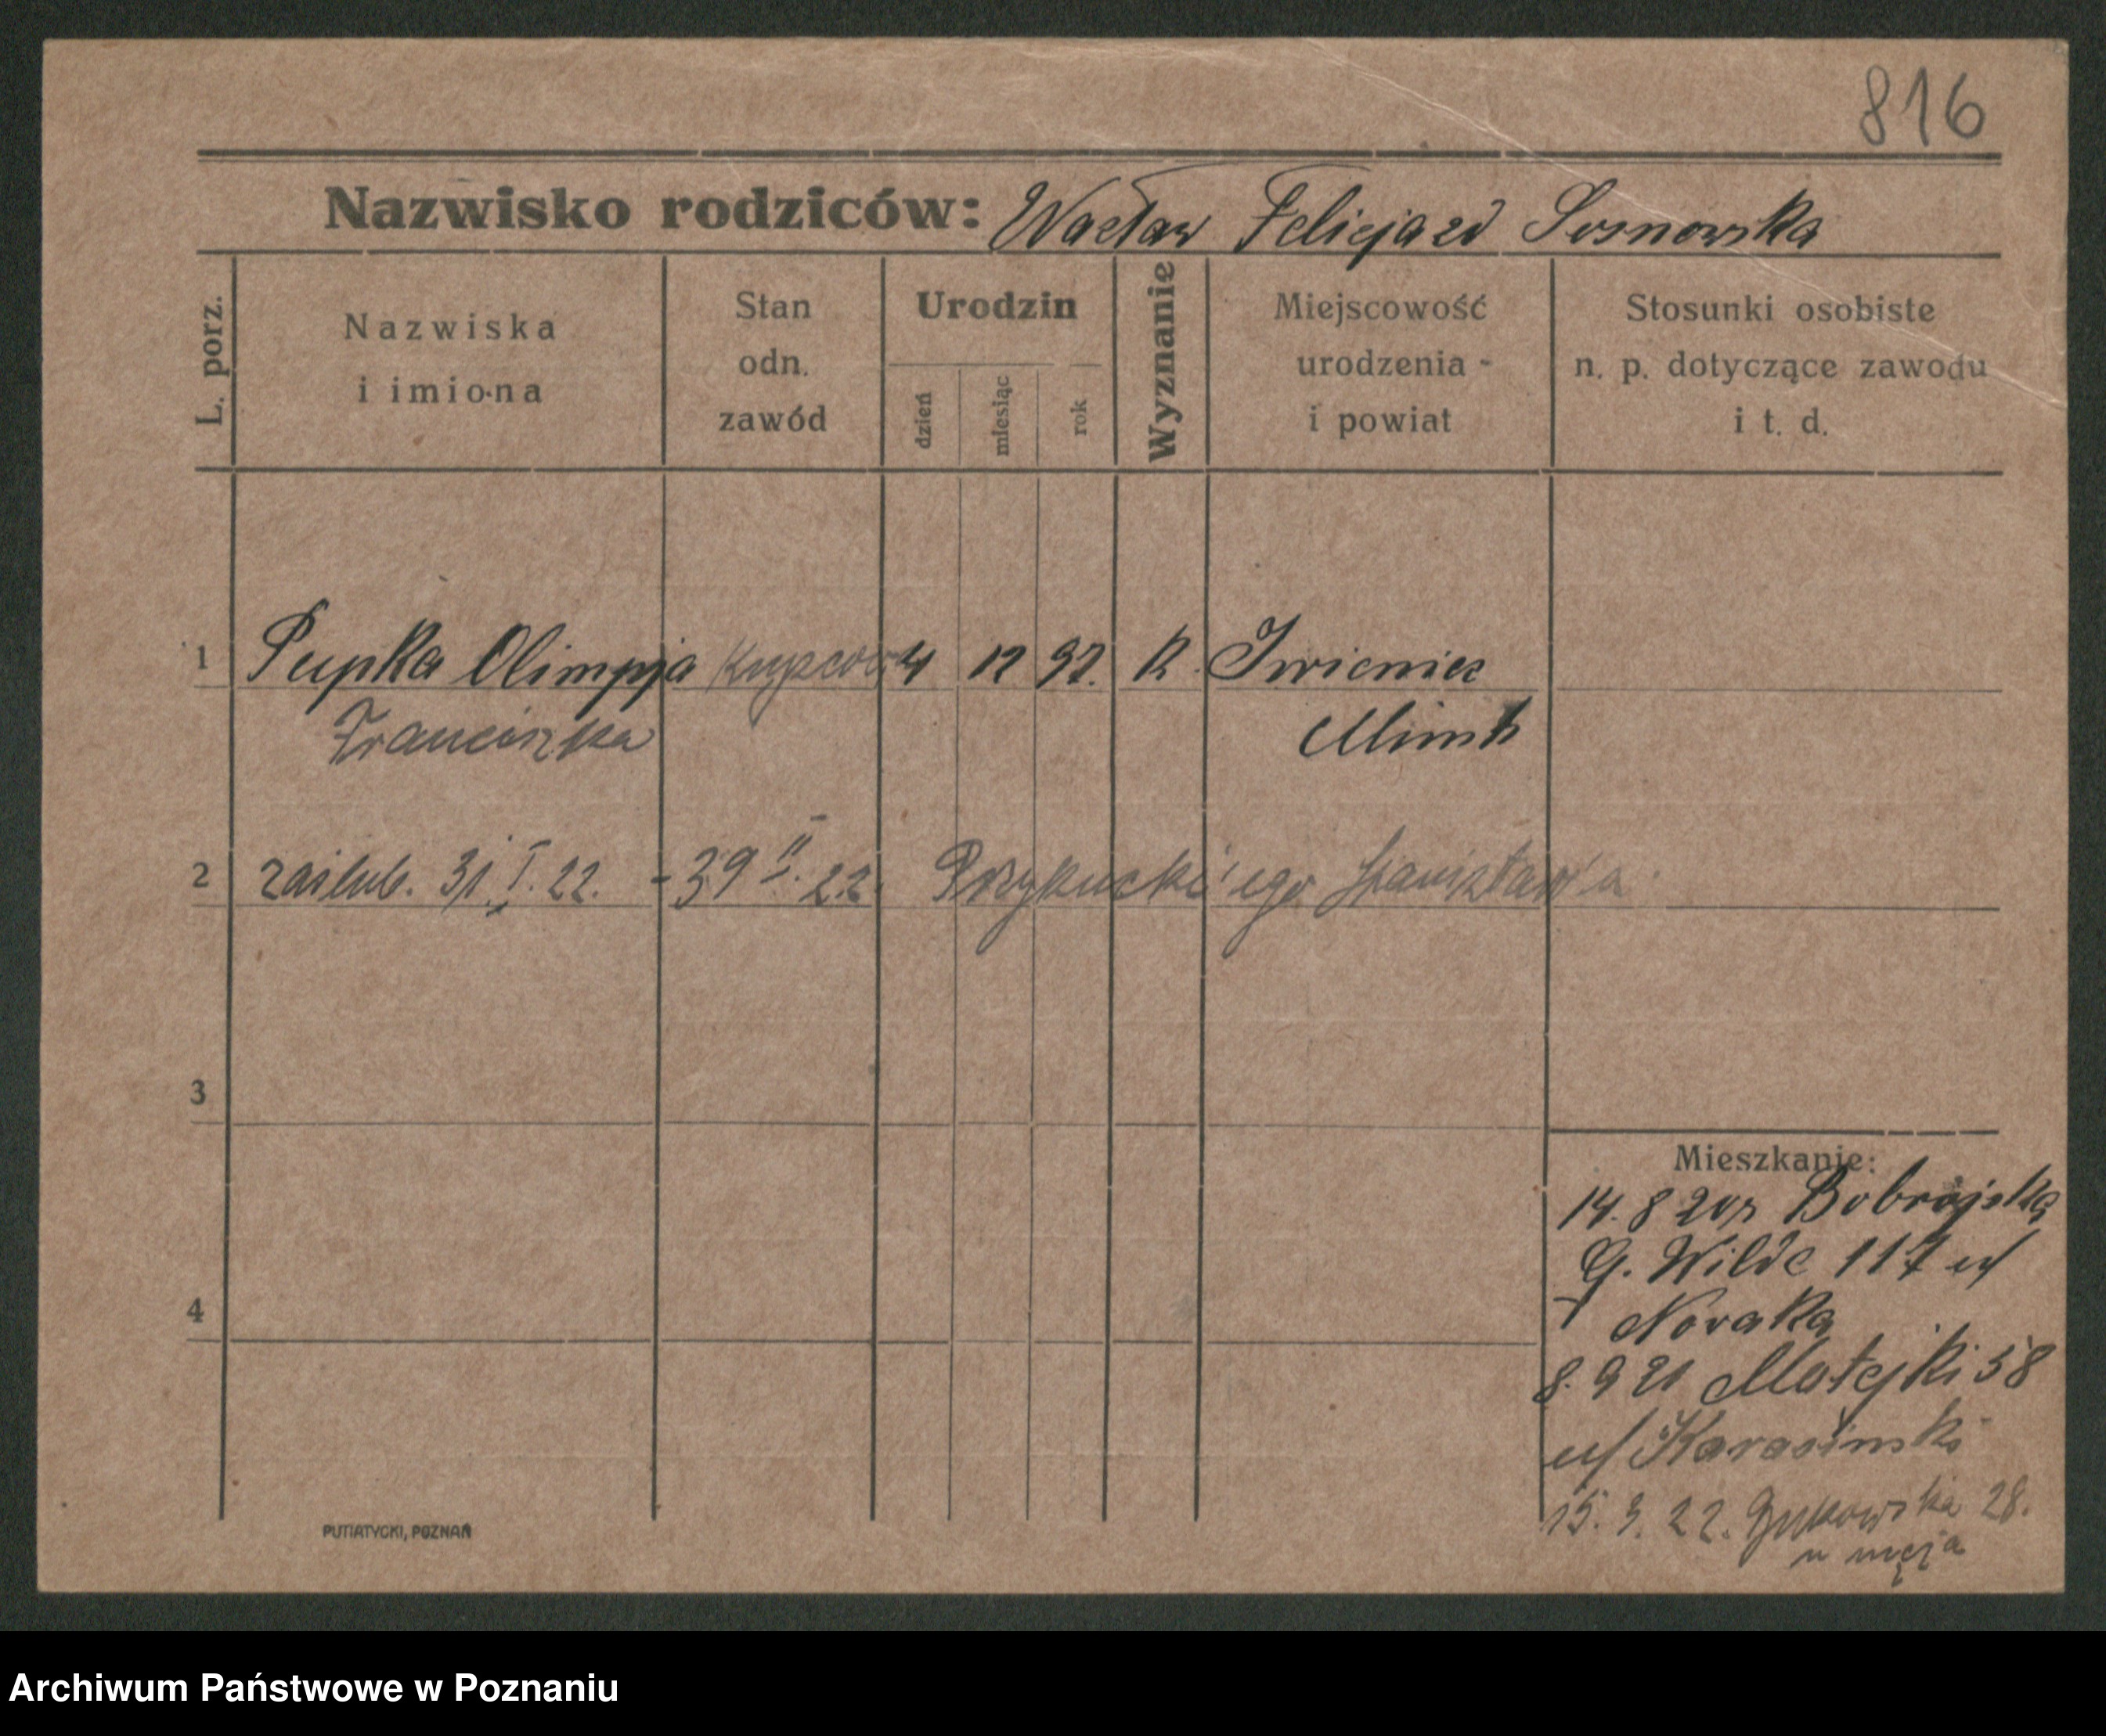 816
Nazwisko rodziców: Wacław Felicja zd Sosnowska
L. porz.
Nazwiska
i imiona
Stan
odn.
zawód
Urodzin
dzień
miesiąc
rok
Wyznanie
Miejscowość
urodzenia
i powiat
Stosunki osobiste
n. p. dotyczące zawodu
i t. d.
1 Pupka Olimpja 4 12 97. K. Iwieniec
Franciszka Mińsk
2 zaślub. 31. I. 22. - 39 II. 22. Stanisława
3
4
Mieszkanie:
14. 8 20 r Bobrójska
G. Wilde 117 u/
Novaka
8. 9 21 Matejki 58
u/ Karasinski
15. 3. 22. Bukowska 28.
u męża
PUTIATYCKI, POZNAŃ
Archiwum Państwowe w Poznaniu